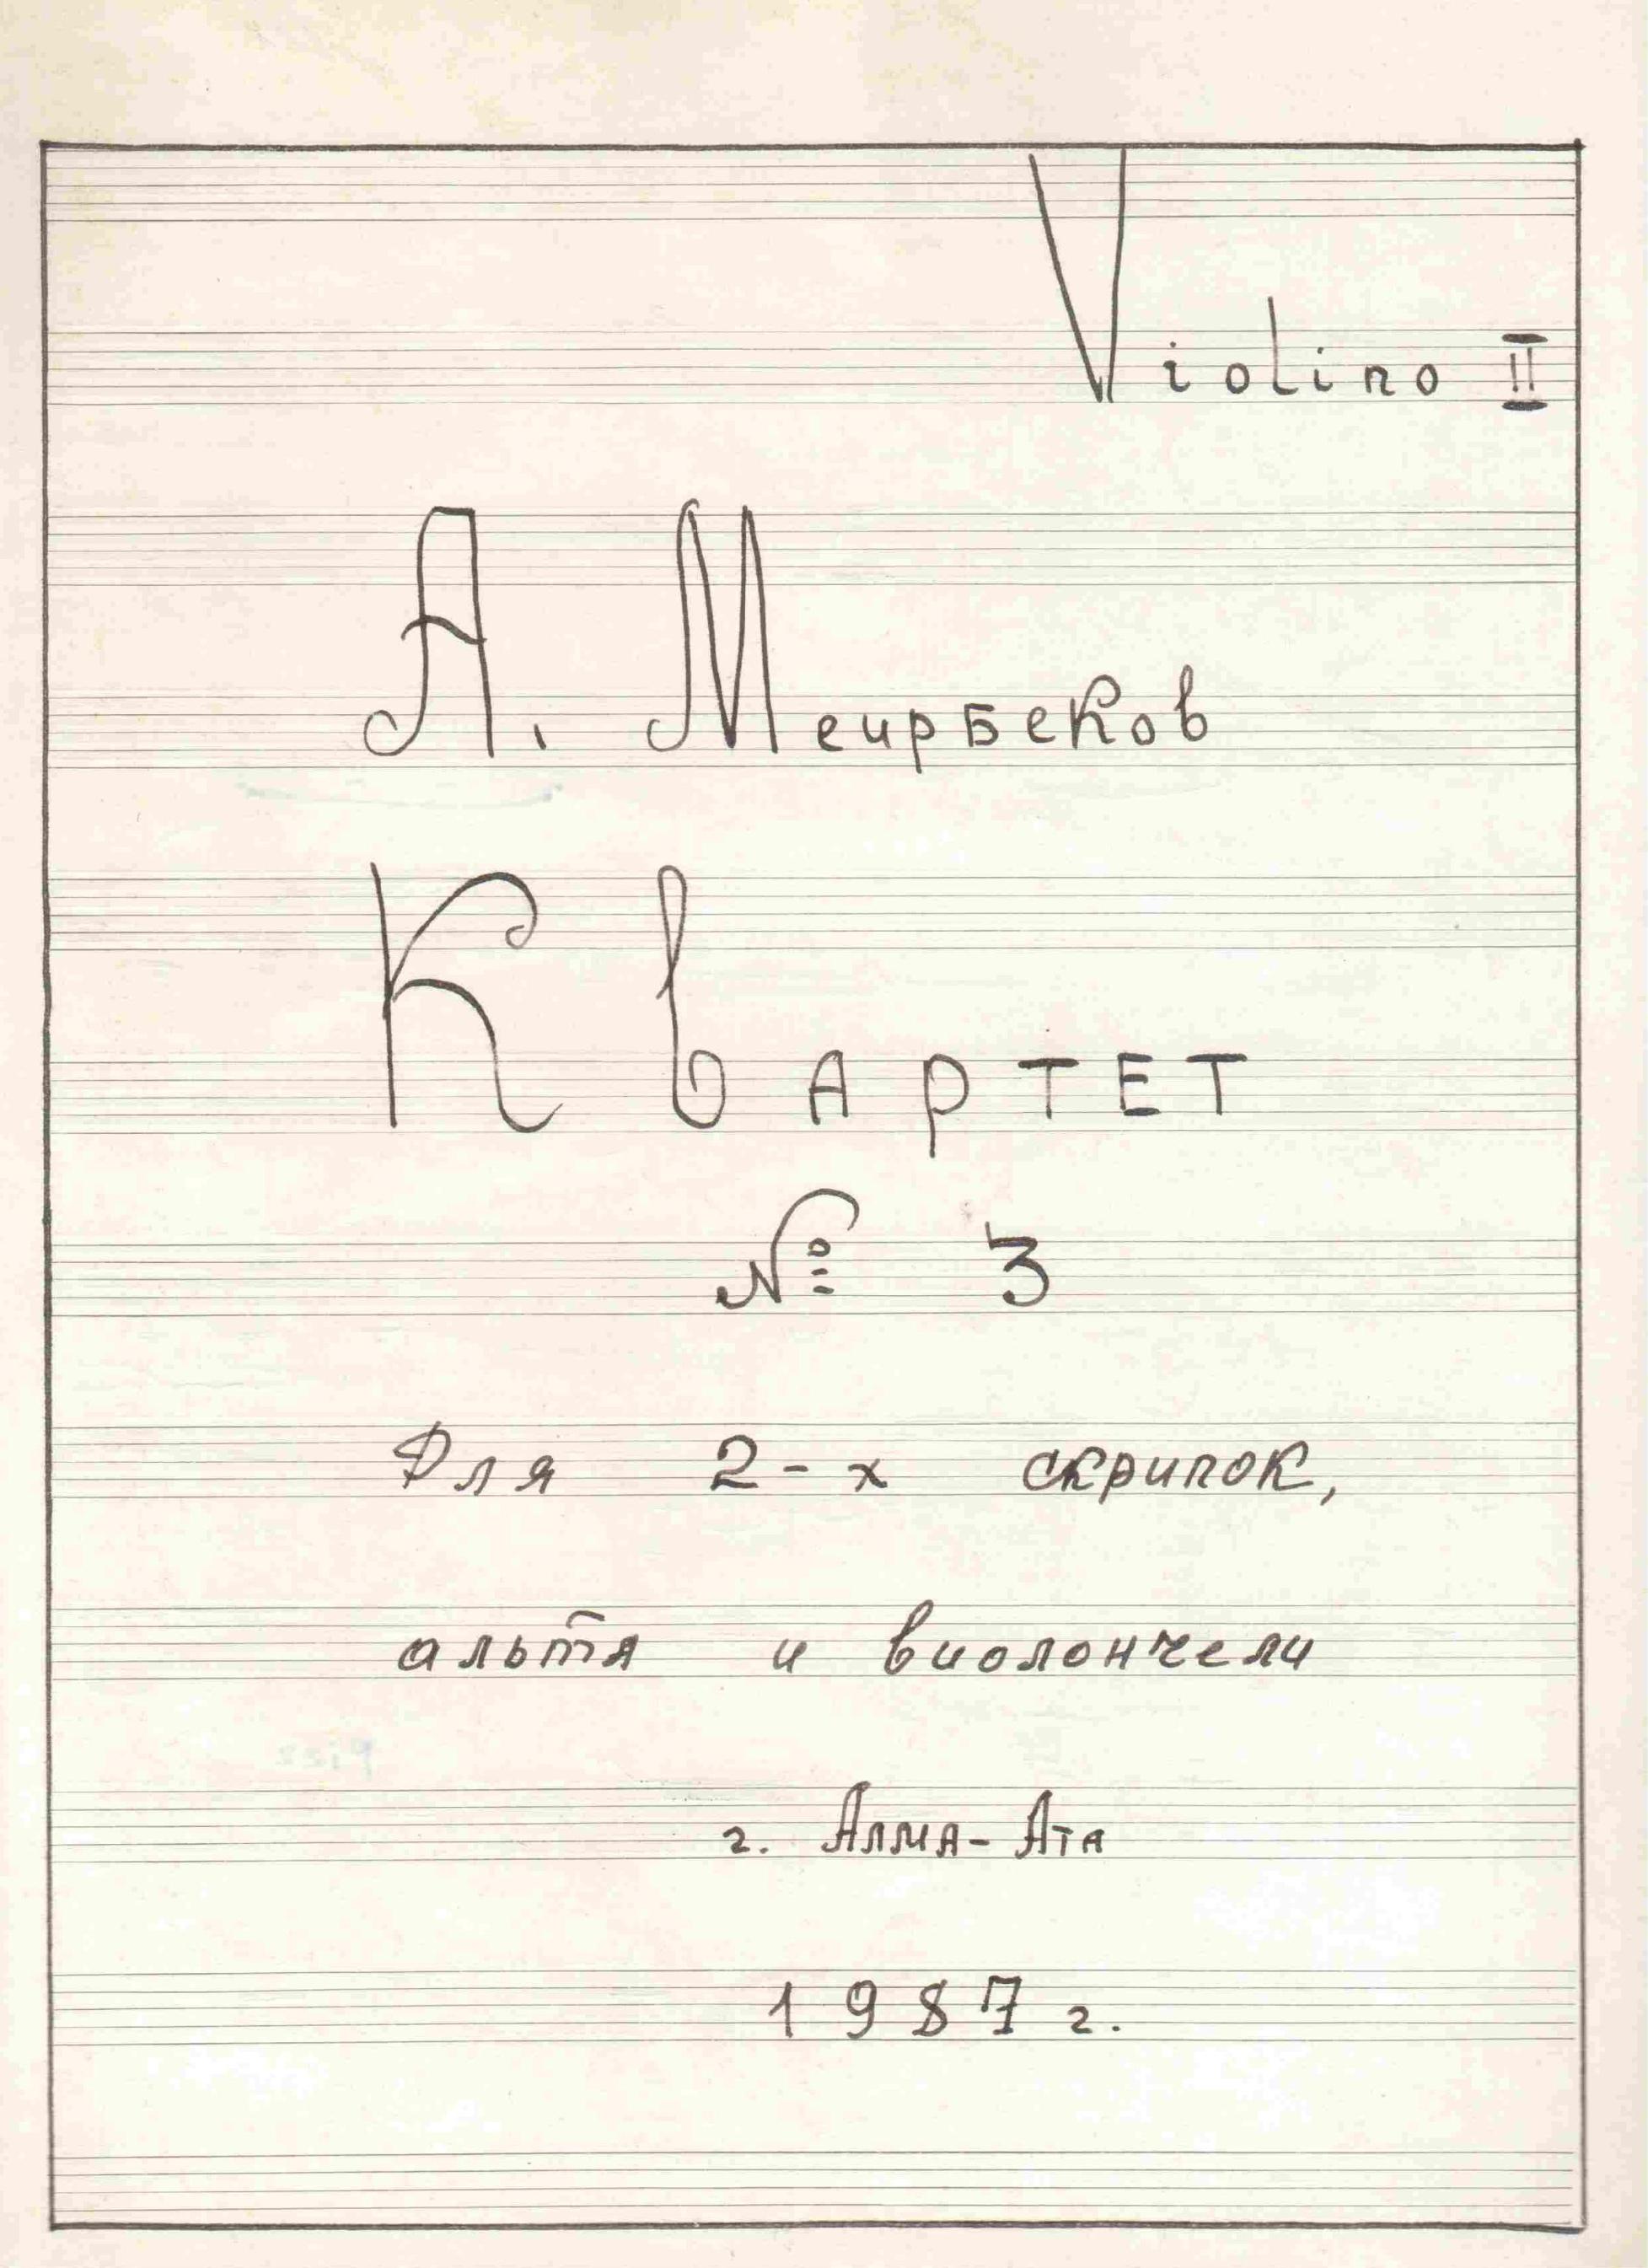 Violino II
А. Меирбеков
Квартет
№ 3
Для 2-х скрипок,
альтя и виолончели
г. Алма-Ата
1987 г.